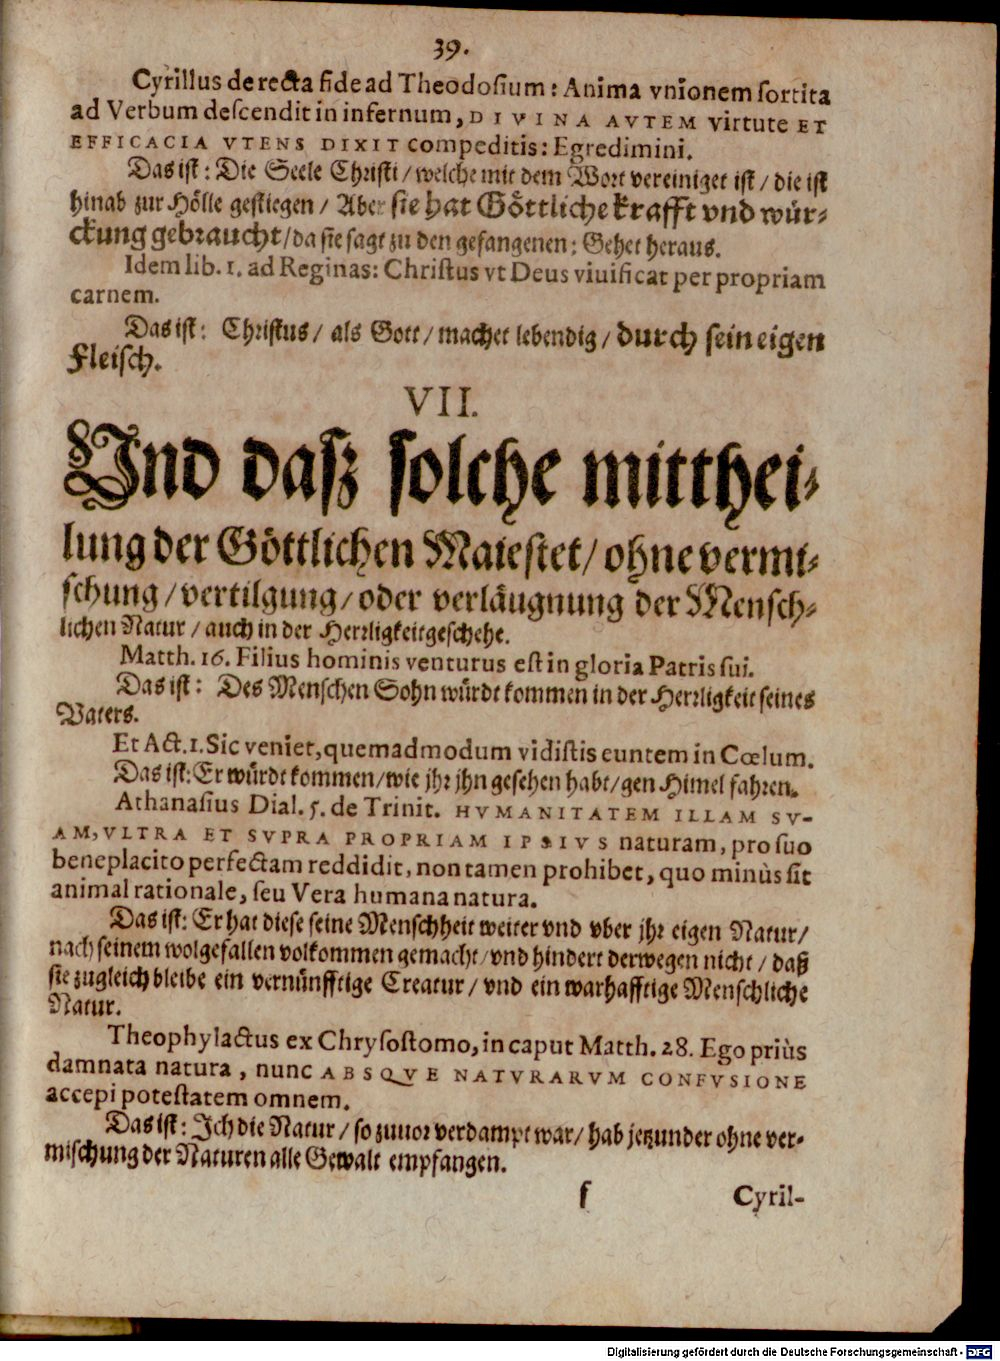 39.
Cyrillus de recta fide ad Theodosium: Anima vnionem sortita
ad Verbum descendit in infernum, DIVINA AVTEM virtute ET
EFFICACIA VTENS DIXIT compeditis: Egredimini.
Das ist: Die Seele Christi / welche mit dem Wort vereiniget ist / die ist
hinab zur Hölle gestiegen / Aber sie hat Göttliche krafft vnd wür-
ckung gebraucht / da sie sagt zu den gefangenen: Gehet heraus.
Idem lib. 1. ad Reginas: Christus vt Deus viuificat per propriam
carnem.
Das ist: Christus / als Gott / machet lebendig / durch sein eigen
Fleisch.
VII.
Vnd dasz solche mitthei-
lung der Göttlichen Maiestet / ohne vermi-
schung / vertilgung / oder verläugnung der Mensch-
lichen Natur / auch in der Herrligkeit geschehe.
Matth. 16. Filius hominis venturus est in gloria Patris sui.
Das ist: Des Menschen Sohn würdt kommen in der Herrligkeit seines
Vaters.
Et Act. 1. Sic veniet, quemadmodum vidistis euntem in Cœlum.
Das ist: Er würdt kommen / wie jhr jhn gesehen habt / gen Himel fahren.
Athanasius Dial. 5. de Trinit. HVMANITATEM ILLAM SV-
AM, VLTRA ET SVPRA PROPRIAM IPSIVS naturam, pro suo
beneplacito perfectam reddidit, non tamen prohibet, quo minùs sit
animal rationale, seu Vera humana natura.
Das ist: Er hat diese seine Menschheit weiter vnd vber jhr eigen Natur /
nach seinem wolgefallen volkommen gemacht / vnd hindert derwegen nicht / daß
sie zugleich bleibe ein vernünfftige Creatur / vnd ein warhafftige Menschliche
Natur.
Theophylactus ex Chrysostomo, in caput Matth. 28. Ego priùs
damnata natura, nunc ABSQVE NATVRARVM CONFVSIONE
accepi potestatem omnem.
Das ist: Ich die Natur / so zuuor verdampt war / hab jetzunder ohne ver-
mischung der Naturen alle Gewalt empfangen.
f Cyril-
Digitalisierung gefördert durch die Deutsche Forschungsgemeinschaft - DFG